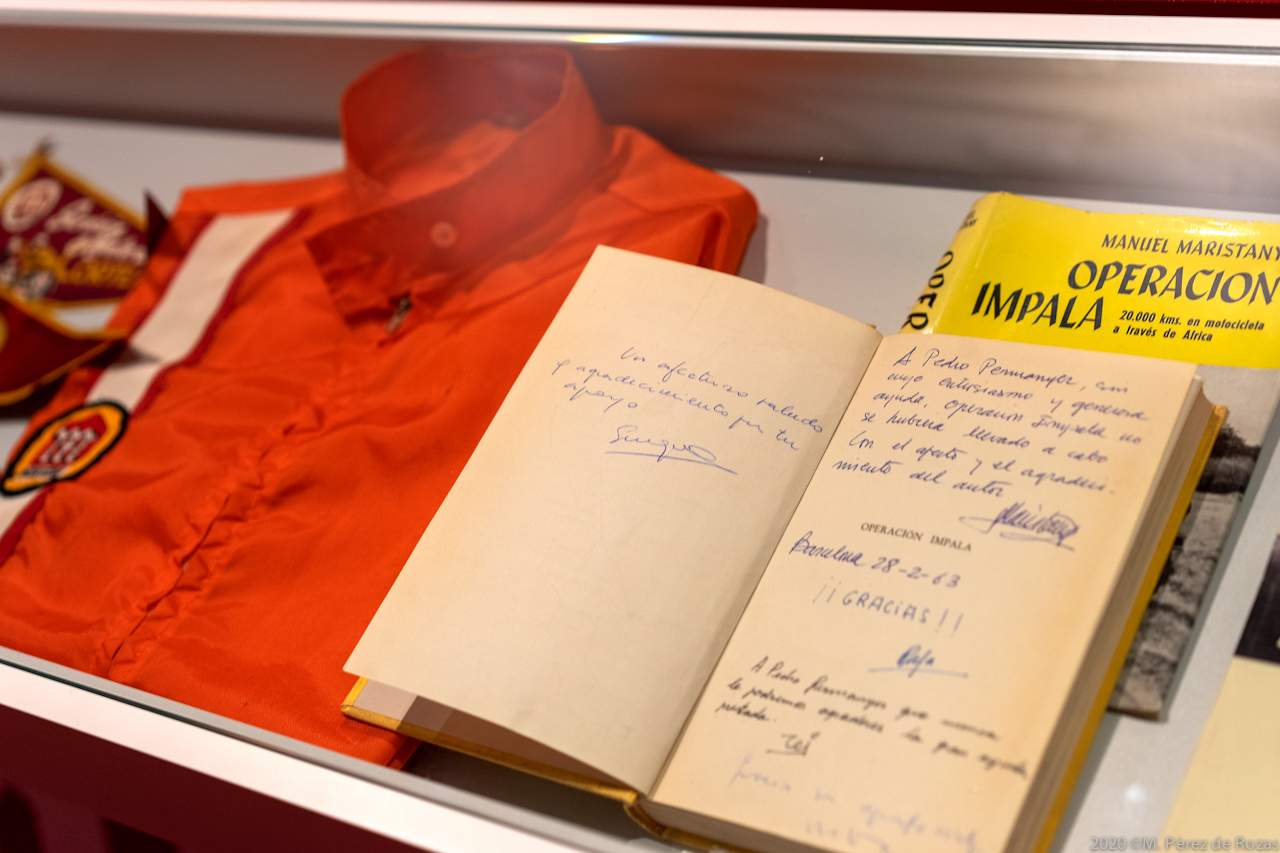 MANUEL MARISTANY
OPERACION
IMPALA
20.000 kms. en motocicleta
a través de Africa
OPER
Un afectuoso saludo
y agradecimiento por tu
apoyo
A Pedro Permanyer, sin
cuyo entusiasmo y generosa
ayuda, Operación Impala no
se hubiera llevado a cabo
Con el afecto y el agradeci-
miento del autor
OPERACIÓN IMPALA
Barcelona 28-2-63
¡¡GRACIAS!!
Rafa
A Pedro Permanyer que nunca
le podremos agradecer la gran ayuda
prestada.
2020 ©M. Pérez de Rozas